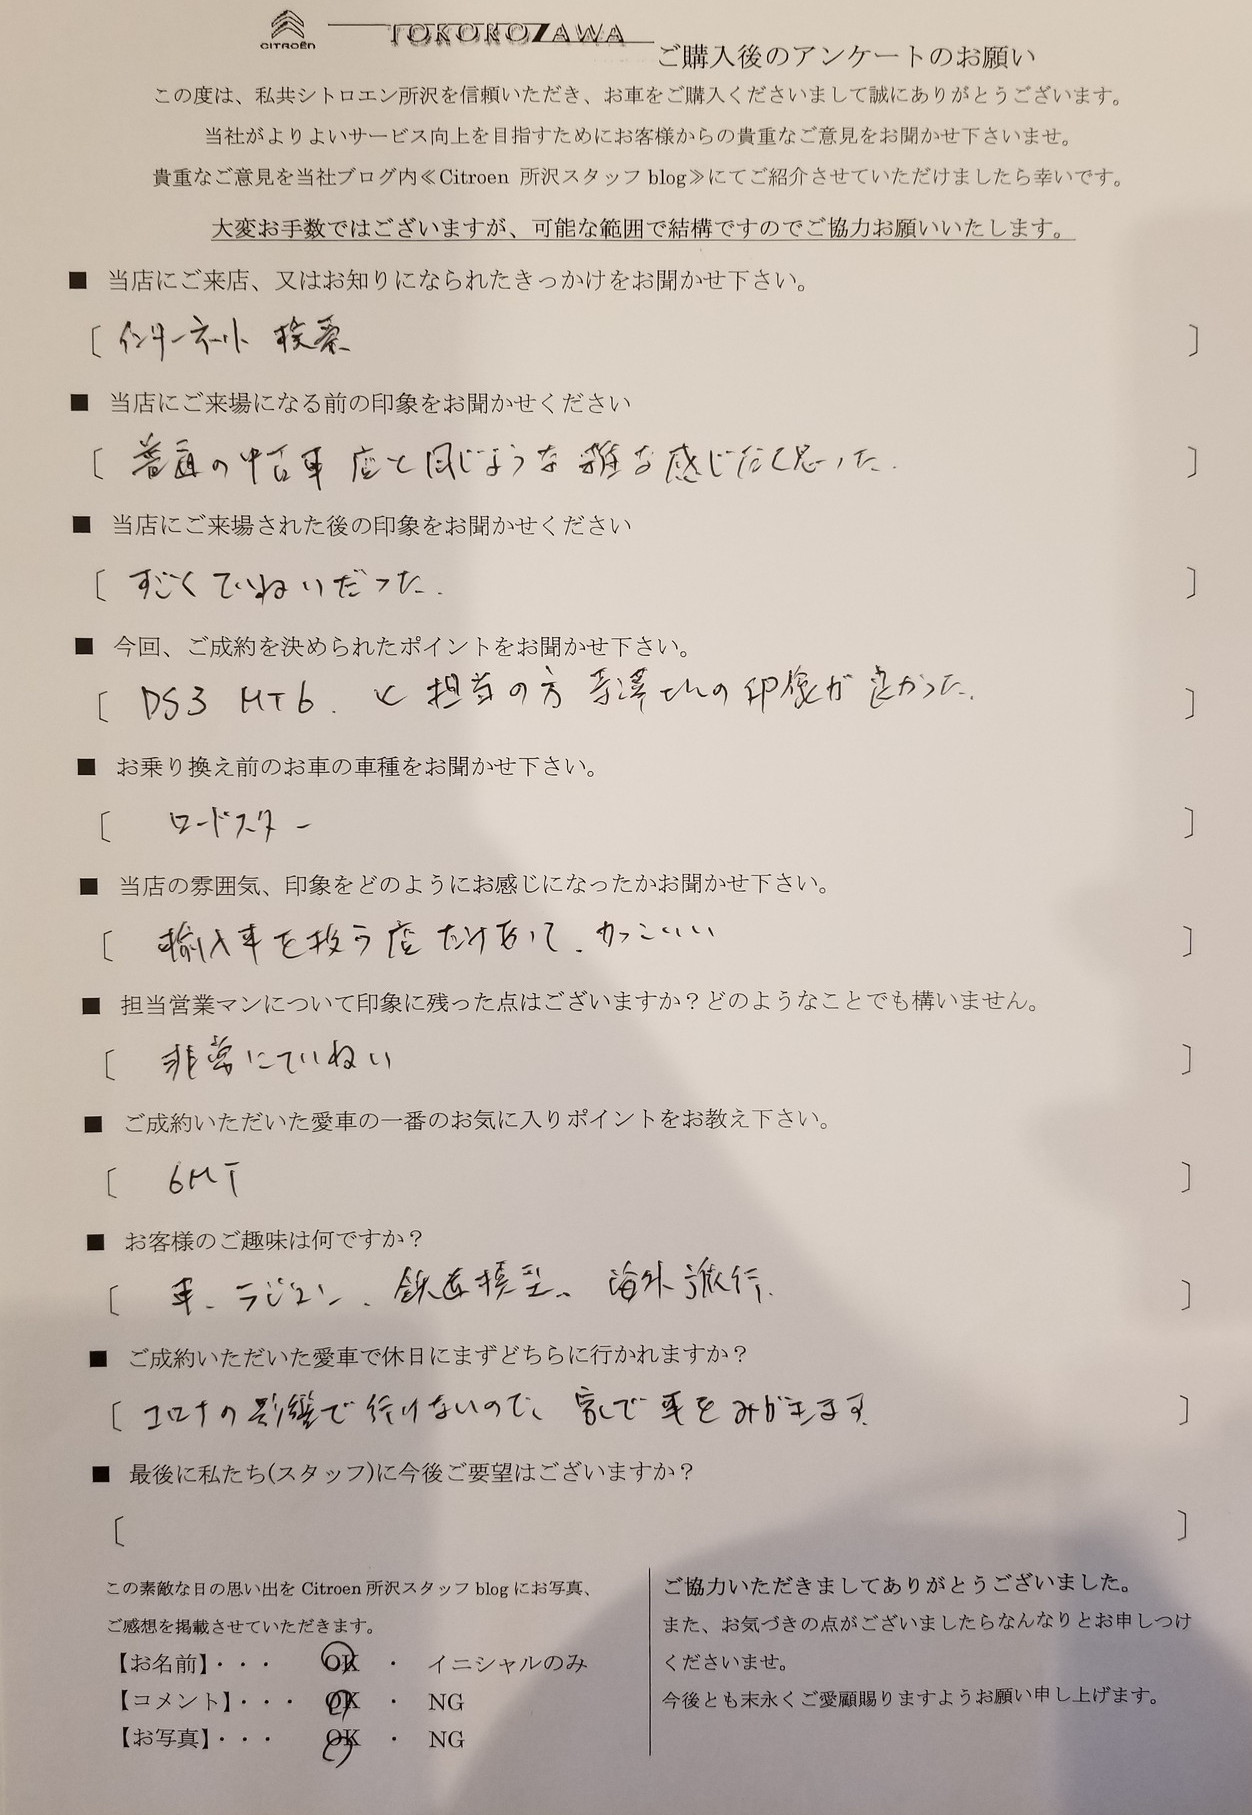 CITROËN
TOKOROZAWA
ご購入後のアンケートのお願い
この度は、私共シトロエン所沢を信頼いただき、お車をご購入くださいまして誠にありがとうございます。
当社がよりよいサービス向上を目指すためにお客様からの貴重なご意見をお聞かせ下さいませ。
貴重なご意見を当社ブログ内≪Citroen 所沢スタッフ blog≫にてご紹介させていただけましたら幸いです。
大変お手数ではございますが、可能な範囲で結構ですのでご協力お願いいたします。
■ 当店にご来店、又はお知りになられたきっかけをお聞かせ下さい。
〔 インターネット 検索 〕
■ 当店にご来場になる前の印象をお聞かせください
〔 普通の中古車店と同じような雑な感じだと思った. 〕
■ 当店にご来場された後の印象をお聞かせください
〔 すごくていねいだった. 〕
■ 今回、ご成約を決められたポイントをお聞かせ下さい。
〔 DS3 MT6. と担当の方 さんの印象が良かった. 〕
■ お乗り換え前のお車の車種をお聞かせ下さい。
〔 ロードスター 〕
■ 当店の雰囲気、印象をどのようにお感じになったかお聞かせ下さい。
〔 輸入車を扱う店だけあって、かっこいい 〕
■ 担当営業マンについて印象に残った点はございますか？どのようなことでも構いません。
〔 非常にていねい 〕
■ ご成約いただいた愛車の一番のお気に入りポイントをお教え下さい。
〔 6MT 〕
■ お客様のご趣味は何ですか？
〔 車、ラジコン、鉄道模型、海外旅行. 〕
■ ご成約いただいた愛車で休日にまずどちらに行かれますか？
〔 コロナの影響で行けないので、家で車をみがきます 〕
■ 最後に私たち(スタッフ)に今後ご要望はございますか？
〔 〕
この素敵な日の思い出を Citroen 所沢スタッフ blog にお写真、
ご感想を掲載させていただきます。
【お名前】・・・ OK ・ イニシャルのみ
【コメント】・・・ OK ・ NG
【お写真】・・・ OK ・ NG
ご協力いただきましてありがとうございました。
また、お気づきの点がございましたらなんなりとお申しつけ
くださいませ。
今後とも末永くご愛顧賜りますようお願い申し上げます。